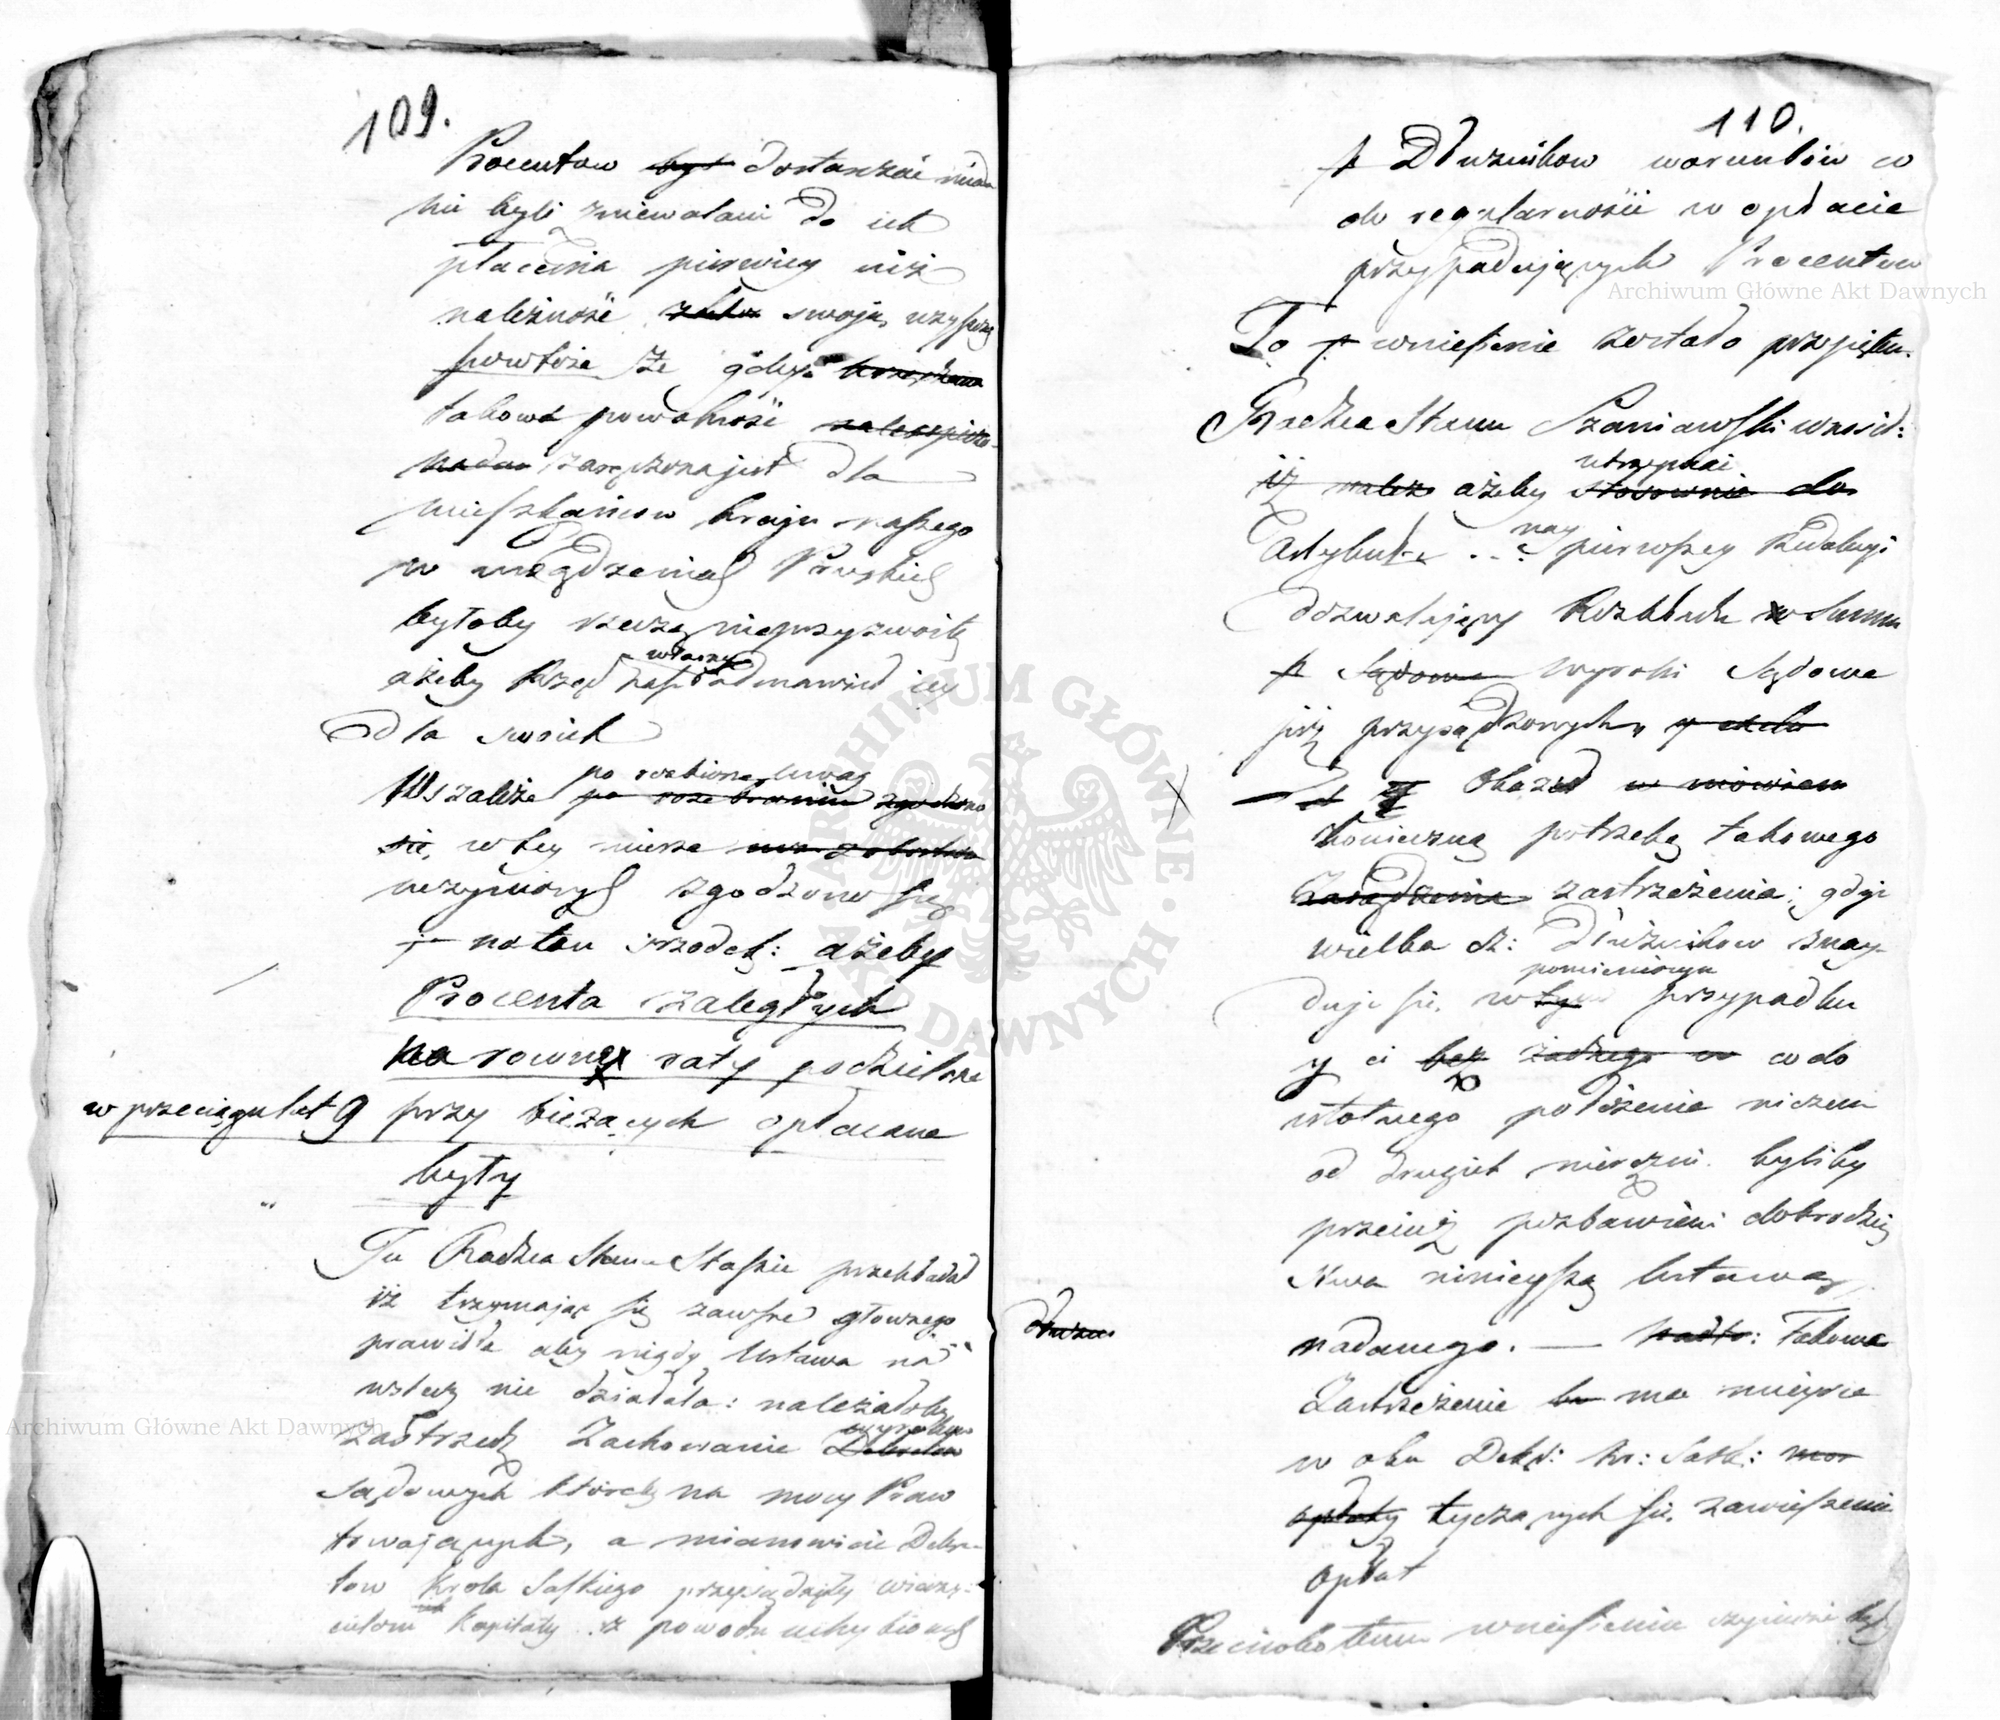 109.
Procentow ~~był~~ dostarczać
nie byli zniewalani do ich
płacenia pierwiey niż
należność swoją uzyskają
powtóre że gdyż
takowa powolność
zaręczona jest dla
mieszkańcow kraju naszego
w urządzeniach Pruskich
byłoby rzeczą nieprzyzwoitą
ażeby Rząd własny odmawiał iey
dla swoich
Wszakże po zrobioney uwagę
w tey mierze
uczynionych zgodzono się
na ten srzodek: ażeby
Procenta zaległych
na rowne raty podzielone
w przeciągu lat 9 przy bieżących opłacane
były
Tu Radzca Stanu Staszic przekładał
iż trzymając się zawsze głownego
prawidła aby nigdy Ustawa na
wstecz nie działała: należałoby
zastrzedz Zachowanie wyrokow
sądowych któreby na mocy Praw
trwających, a mianowicie Dekre-
tow Krola Saskiego przysądziły wierzy-
cielom Kapitały z powodu uchybionych
110.
Dłużnikow warunkow co
do regularności w opłacie
przypadających Procentow
To wniesienie zostało przyięte.
Radzca Stanu Szaniawski wnosił:
ażeby utrzymać
naypierwszey Redakcyi
dozwalaiący Rozkładu Summ
wyroki Sądowe
już przysądzonych,
Okazał
konieczną potrzebę takowego
zastrzeżenia; gdyż
wielka cz: Dłużnikow znay-
duje się w pomienionym przypadku
y ci co do
istotnego położenia niczem
od drugich nieróżni. byliby
przecież pozbawieni dobrodziey
stwa ninieyszą Ustawą
nadanego. — Takowe
Zastrzeżenie ma mieysce
w obu Dekr: Kr: Sask:
tyczących się zawieszenia
opłat
Przeciwko temu wniesieniu czynione były
Archiwum Główne Akt Dawnych
Archiwum Główne Akt Dawnych
ARCHIWUM GŁÓWNE AKT DAWNYCH